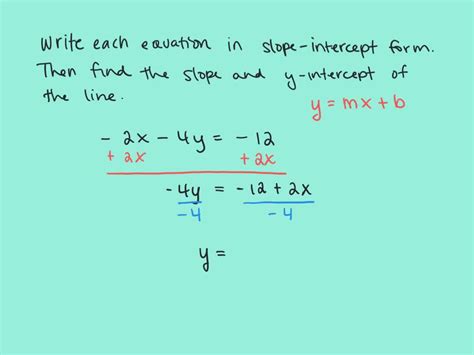 Write each equation in slope-intercept form.
Then find the slope and y-intercept of
the line.
y = mx + b
- 2x - 4y = -12
+ 2x + 2x
-4y = -12 + 2x
-4 -4
y =